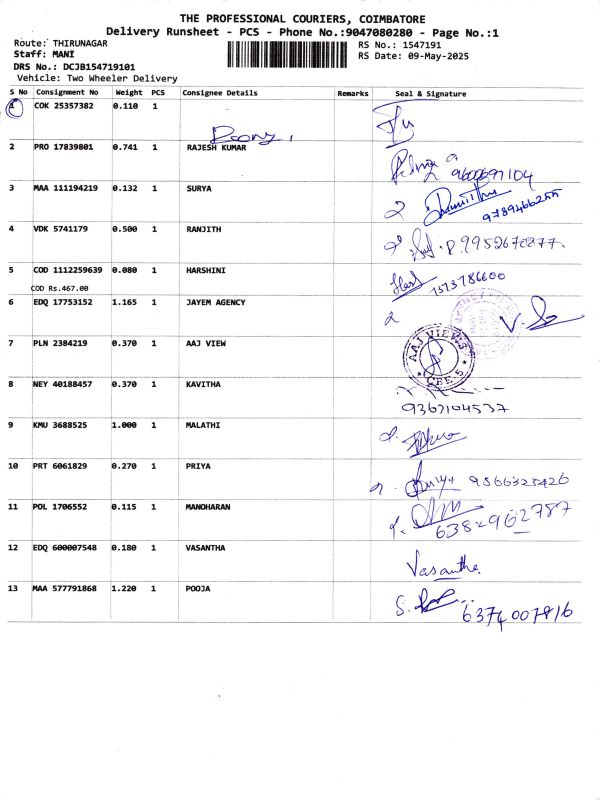 THE PROFESSIONAL COURIERS, COIMBATORE
Delivery Runsheet - PCS - Phone No.:9047080280 - Page No.:1
Route: THIRUNAGAR RS No.: 1547191
Staff: MANI RS Date: 09-May-2025
DRS No.: DCJB154719101
Vehicle: Two Wheeler Delivery
S No Consignment No Weight PCS Consignee Details Remarks Seal & Signature
1 COK 25357382 0.110 1
2 PRO 17839801 0.741 1 RAJESH KUMAR 9600697104
3 MAA 111194219 0.132 1 SURYA 9789466255
4 VDK 5741179 0.500 1 RANJITH P.9952670277
5 COD 1112259639 0.080 1 HARSHINI
COD Rs.467.00
6 EDQ 17753152 1.165 1 JAYEM AGENCY
7 PLN 2384219 0.370 1 AAJ VIEW AAJ VIEWS CBE-5
8 NEY 40188457 0.370 1 KAVITHA 9367104537
9 KMU 3688525 1.000 1 MALATHI
10 PRT 6061829 0.270 1 PRIYA 9566325426
11 POL 1706552 0.115 1 MANOHARAN 6382962787
12 EDQ 600007548 0.180 1 VASANTHA Vasantha.
13 MAA 577791868 1.220 1 POOJA 6374007816